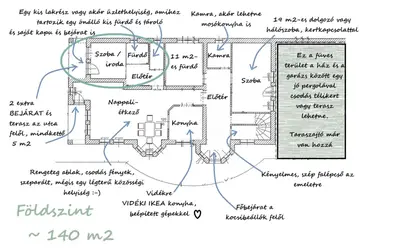 Egy kis lakrész vagy akár üzlethelyiség, amihez
tartozik egy önálló kis fürdő és tároló
és saját kapu és bejárat is
Kamra, akár lehetne
mosókonyha is
19 m2-es dolgozó vagy
hálószoba, kertkapcsolattal
Szoba /
iroda
Fürdő
Előtér
11 m2-
es fürdő
Kamra
Szoba
Előtér
Ez a füves
terület a ház és a
garázs között egy
jó pergolával
csodás télikert
vagy terasz
lehetne,
Teraszajtó már
van hozzá
2 extra
BEJÁRAT és
terasz az utca
felől, mindkettő
5 m2
Nappali-
étkező
Konyha
Rengeteg ablak, csodás fények,
szeparált, mégis egy légterű közösségi
helyiség :-)
Vidékre
VIDÉKI IKEA konyha,
beépített gépekkel
Főbejárat a
kocsibeállók felől
Kényelmes, szép falépcső az
emeletre
Földszint
~ 140 m2